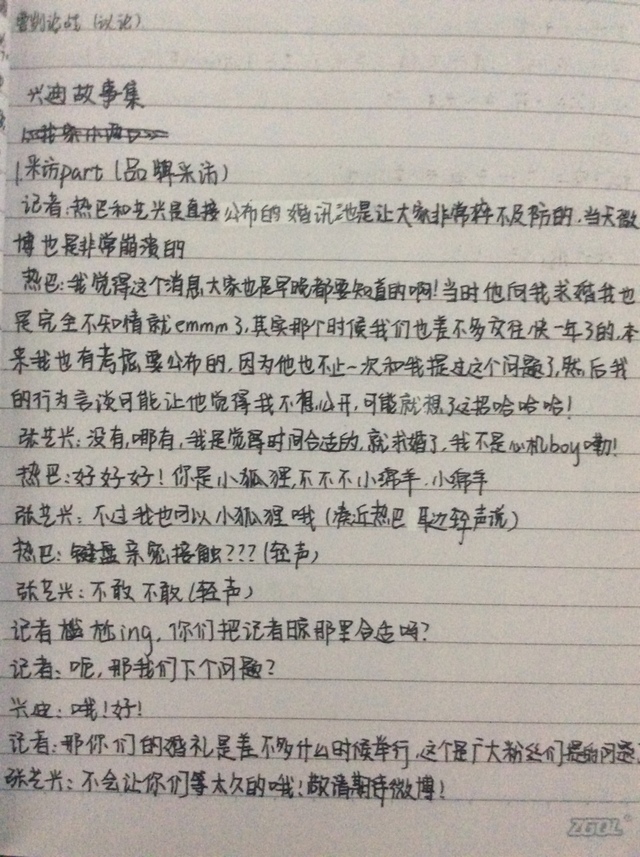 (议论)
兴迪故事集
采访part(品牌采访)
记者:热巴和艺兴是直接公布的婚讯也是让大家非常猝不及防的,当天微
博也是非常崩溃的
热巴:我觉得这个消息大家也是早晚都要知道的啊!当时他向我求婚我也
是完全不知情就emmm了,其实那个时候我们也差不多交往快一年了的,本
来我也有考虑要公布的,因为他也不止一次和我提过这个问题了,然后我
的行为言谈可能让他觉得我不想公开,可能就想了这招哈哈哈!
张艺兴:没有,哪有,我是觉得时间合适的,就求婚了,我不是心机boy嘞!
热巴:好好好!你是小狐狸,不不不小绵羊.小绵羊
张艺兴:不过我也可以小狐狸哦(凑近热巴 耳边轻声说)
热巴:键盘亲密接触???(轻声)
张艺兴:不敢不敢(轻声)
记者尴尬ing,你们把记者晾那里合适吗?
记者:呃,那我们下个问题?
兴迪:哦!好!
记者:那你们的婚礼是差不多什么时候举行,这个是广大粉丝们提的问题,
张艺兴:不会让你们等太久的哦!敬请期待微博!
ZGOL